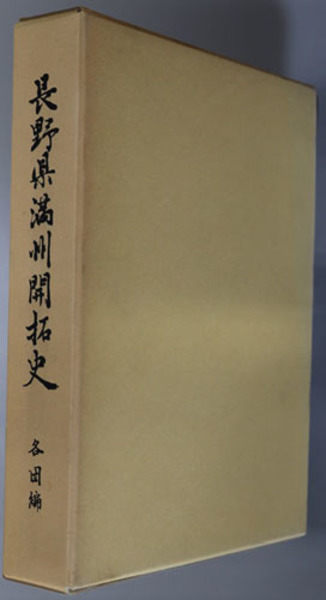 長野県満州開拓史
各団編